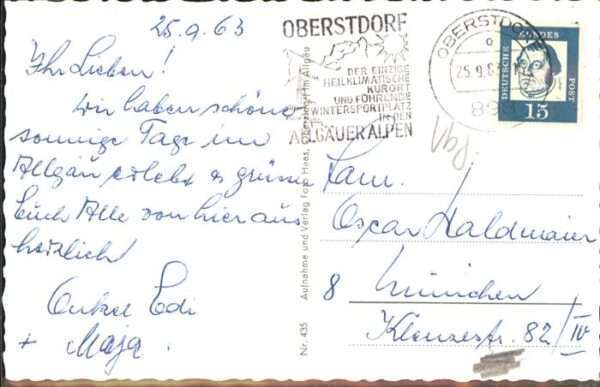 25.9.63
Ihr Lieben!
Wir haben schöne
sonnige Tage im
Allgäu erlebt es grüssen
Euch Alle von hier aus
herzlich
Onkel Edi
+ Maja.
OBERSTDORF
DER EINZIGE
HEILKLIMATISCHE
KURORT
UND FÜHRENDE
WINTERSPORTPLATZ
IN DEN
ALLGÄUER ALPEN
OBERSTDORF
25.9.63
898
DEUTSCHE BUNDESPOST
15
Aufnahme und Verlag Foto Haas, Oberstdorf im Allgäu
Nr. 435
Fam.
Oscar Haldmaier
8 München
Klenzestr. 82/IV